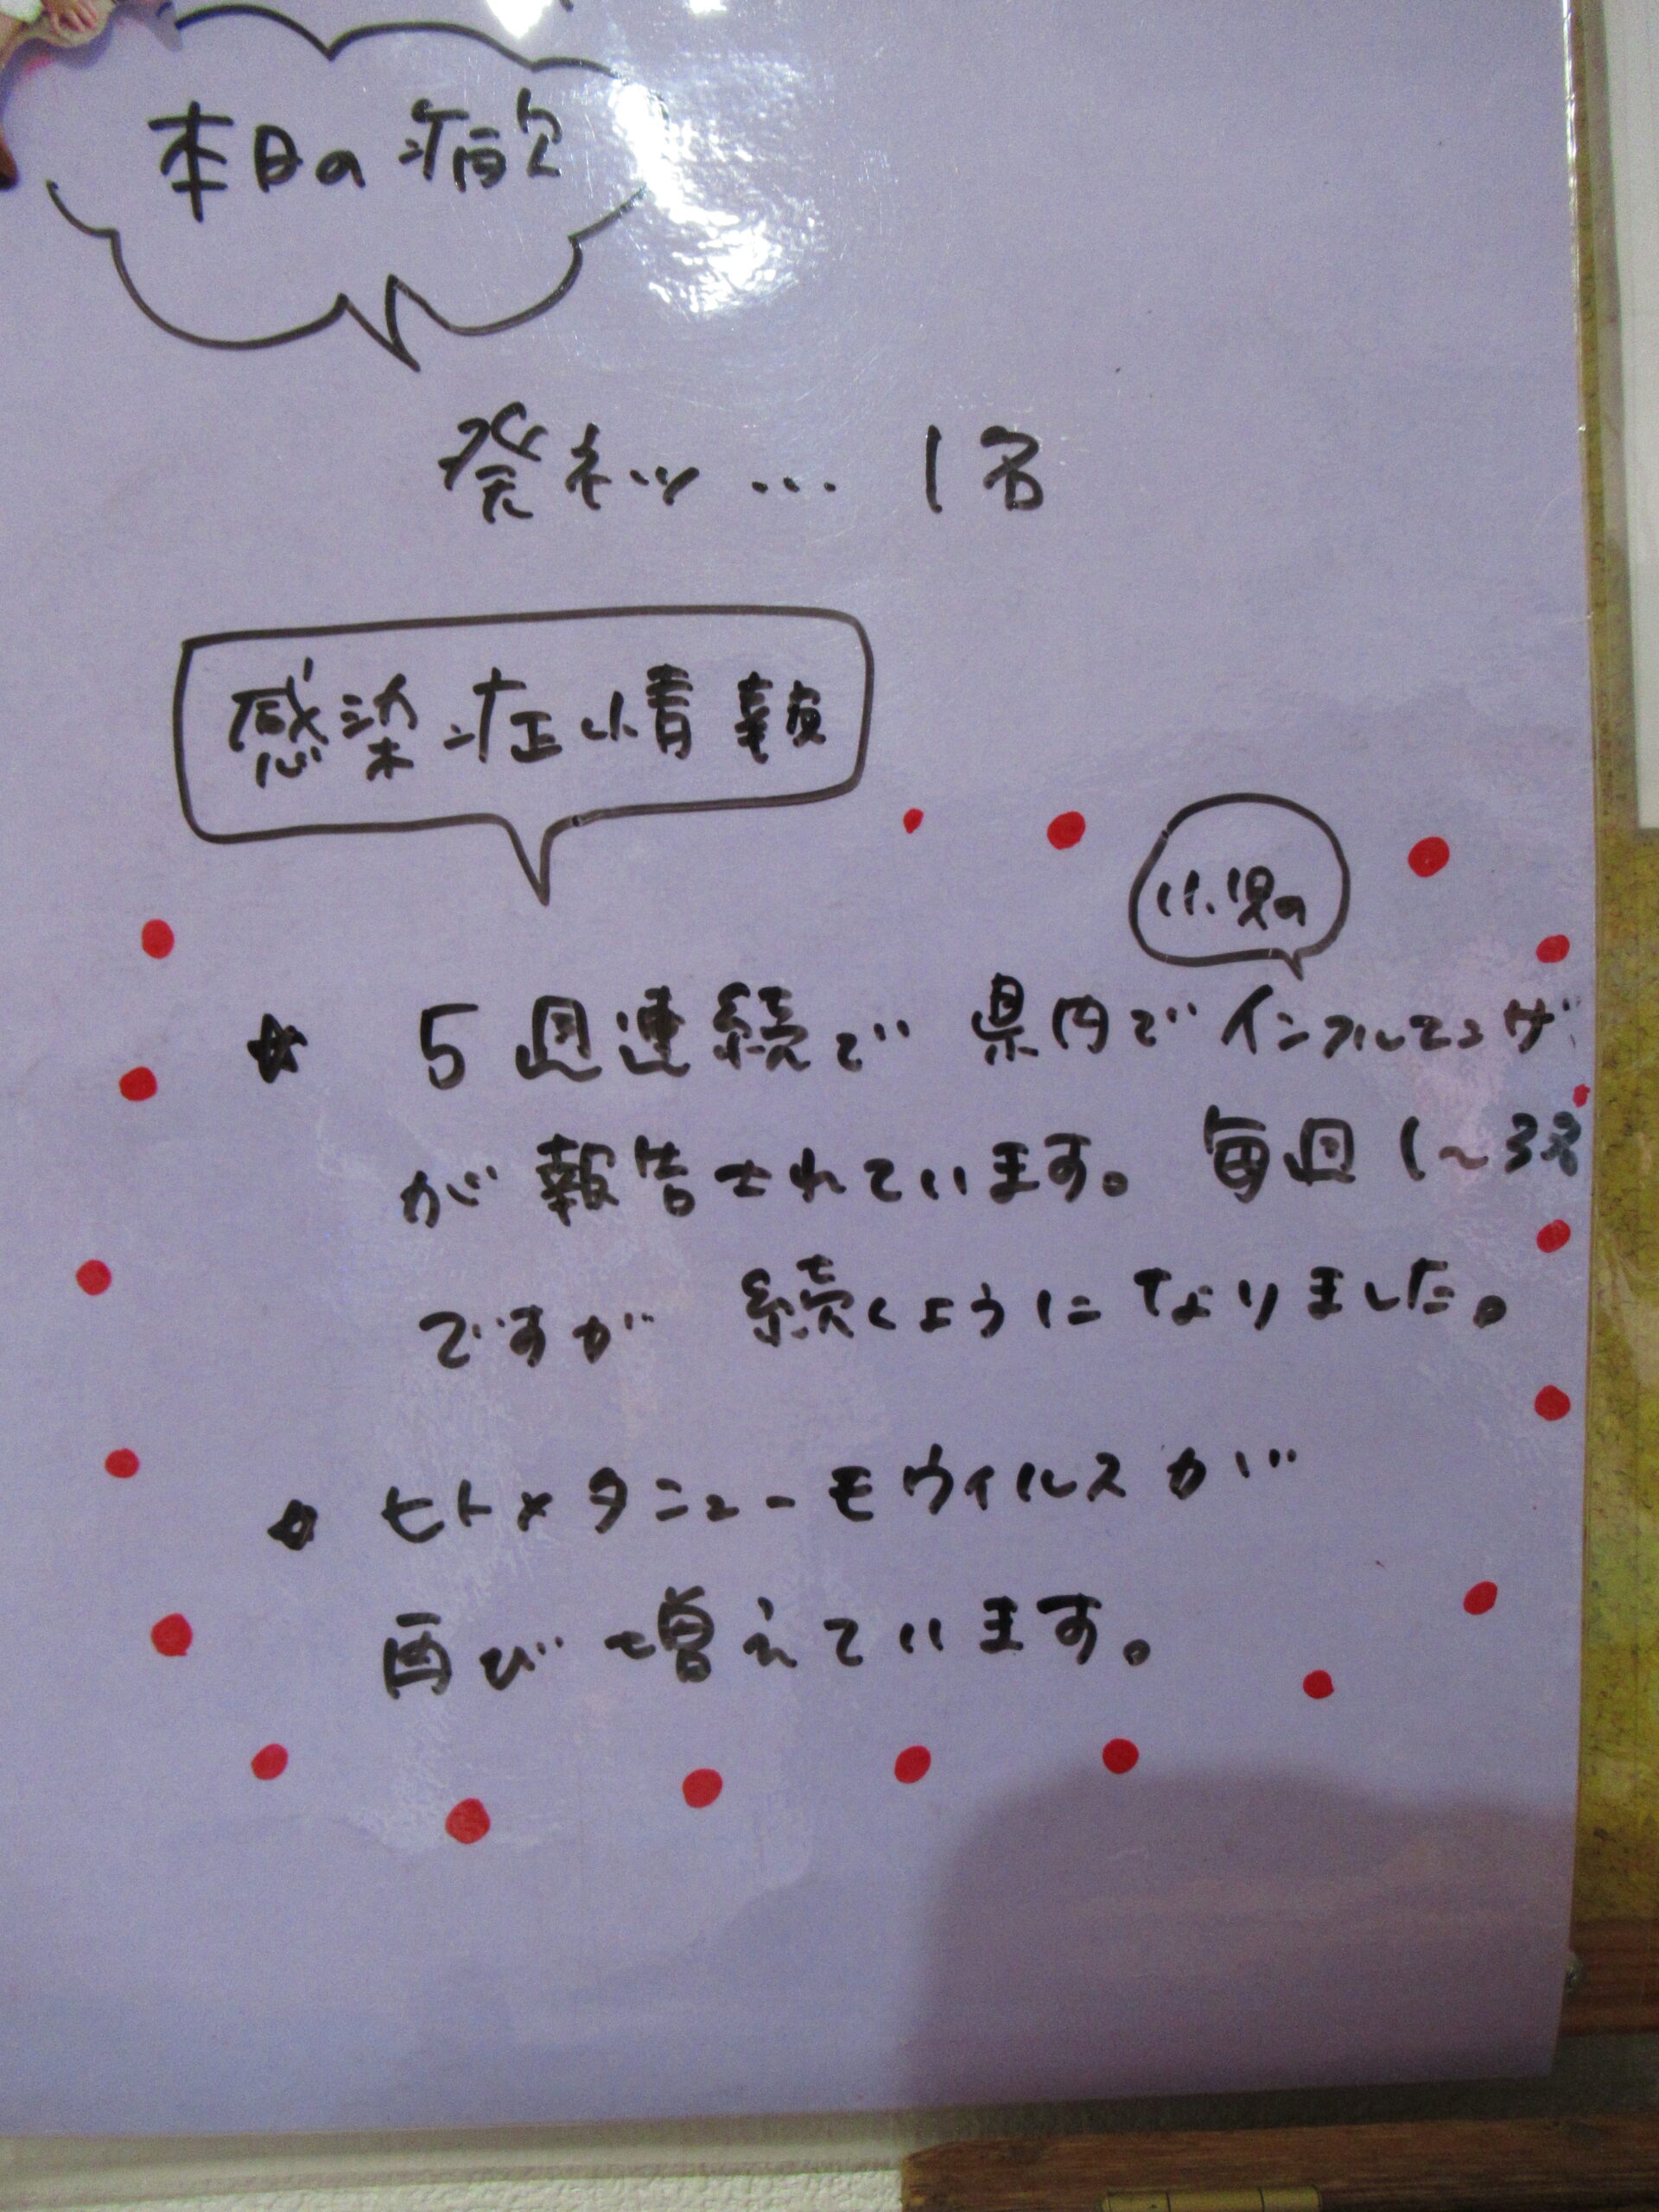 本日の病欠
発ネツ… 1名
感染症情報
小児の
☆ 5週連続で 県内でインフルエンザ
が報告されています。毎週1〜3名
ですが 続くようになりました。
☆ ヒトメタニューモウイルスが
再び増えています。